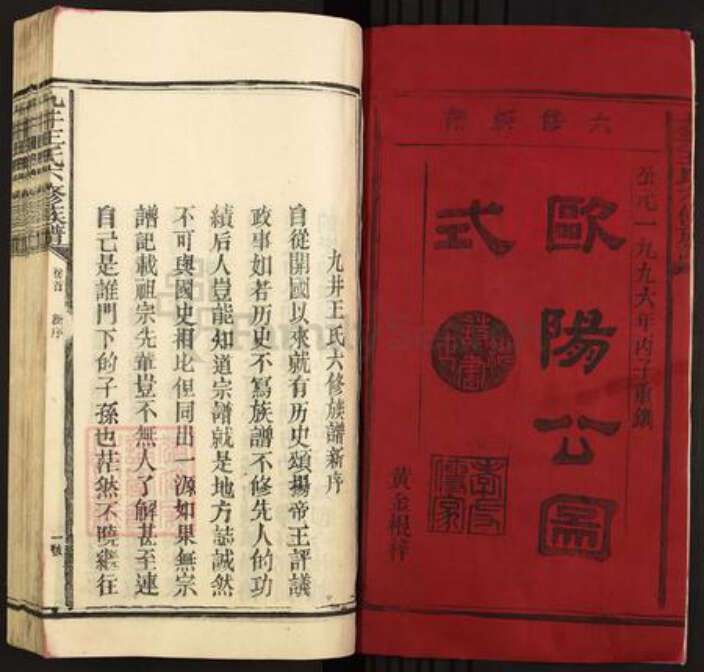 六修新譜
公元一九九六年丙子重鐫
歐陽公圖
式
黃金棍梓
九井王氏六修族譜新序
自從開國以來就有历史頌揚帝王評議
政事如若历史不寫族譜不修先人的功
績后人豈能知道宗譜就是地方誌誠然
不可與國史相比但同出一源如果無宗
譜記載祖宗先輩豈不無人了解甚至連
自己是誰門下的子孫也茫然不曉繼往
九井王氏六修族譜
卷首
新序
一號